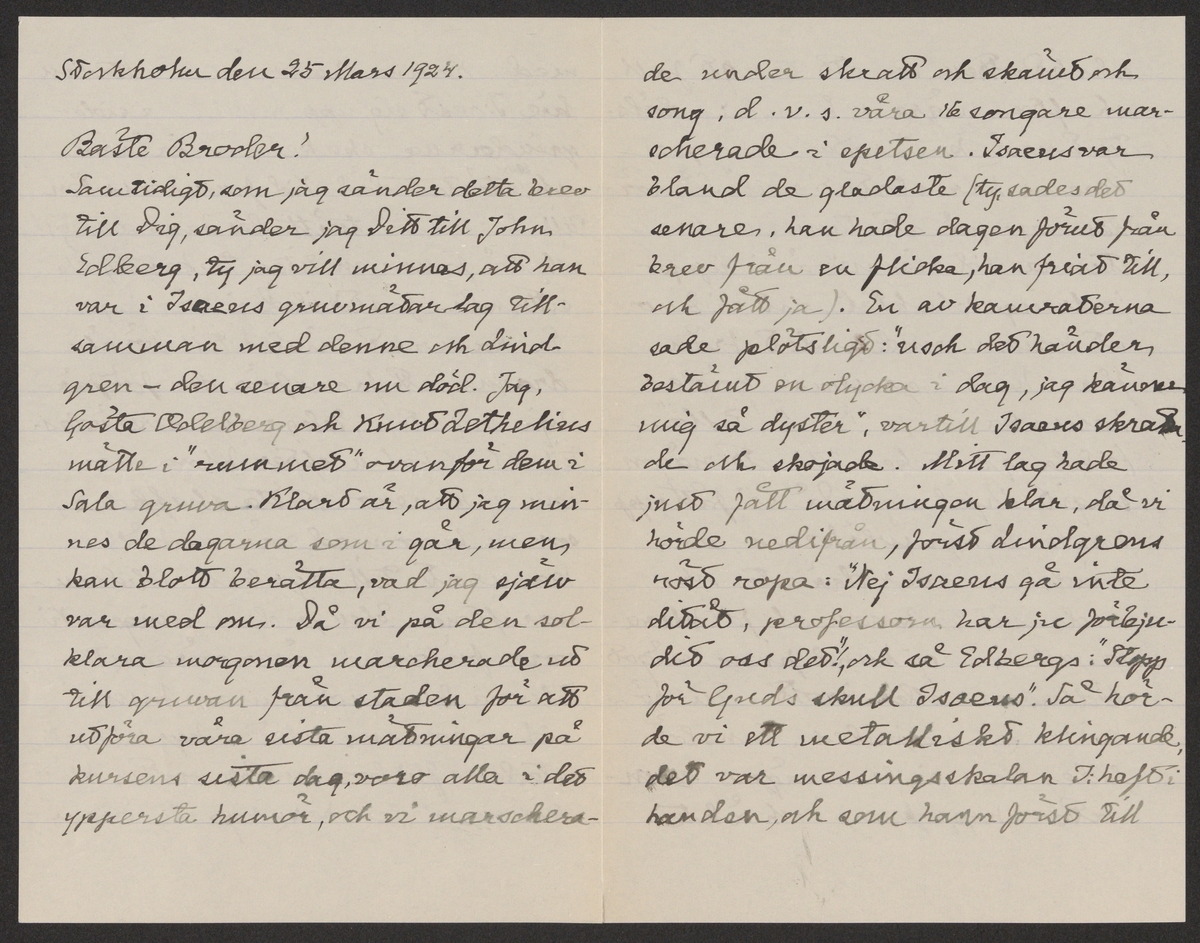 Stockholm den 25 Mars 1924.
Bäste Broder!
Samtidigt, som jag sänder detta brev
till Dig, sänder jag Ditt till John
Edberg, ty jag vill minnas, att han
var i Isaeus gruvmätarlag till-
samman med denne och Lind-
gren – den senare nu död. Jag,
Gösta Odelberg och Knut Dethelius
mätte i "rummet" ovanför dem i
Sala gruva. Klart är, att jag min-
nes de dagarna som i går, men
kan blott berätta, vad jag själv
var med om. Då vi på den sol-
klara morgonen marcherade ut
till gruvan från staden för att
utföra våra sista mätningar på
kursens sista dag, voro alla i det
ypperста humör, och vi marschera-
de under skratt och skämt och
song, d.v.s. våra 16 songare mar-
scherade i spetsen. Isaeus var
bland de gladaste (ty, sades det
senare, han hade dagen förut från
brev från en flicka, han friat till,
och fått ja). En av kamraterna
sade plötsligt: "usch det händer
bestämt en olycka i dag, jag känner
mig så dyster", vartill Isaeus skratta
de och skojade. Mitt lag hade
just fått mätningen klar, då vi
hörde nedifrån, först Lindgrens
röst ropa: "Nej Isaeus gå inte
ditåt, professorn har ju förbju-
dit oss det!", och så Edbergs: "Stopp
för Guds skull Isaeus". Så hör-
de vi ett metalliskt klingande,
det var messingsskalan I. haft i
handen, och som hann först till